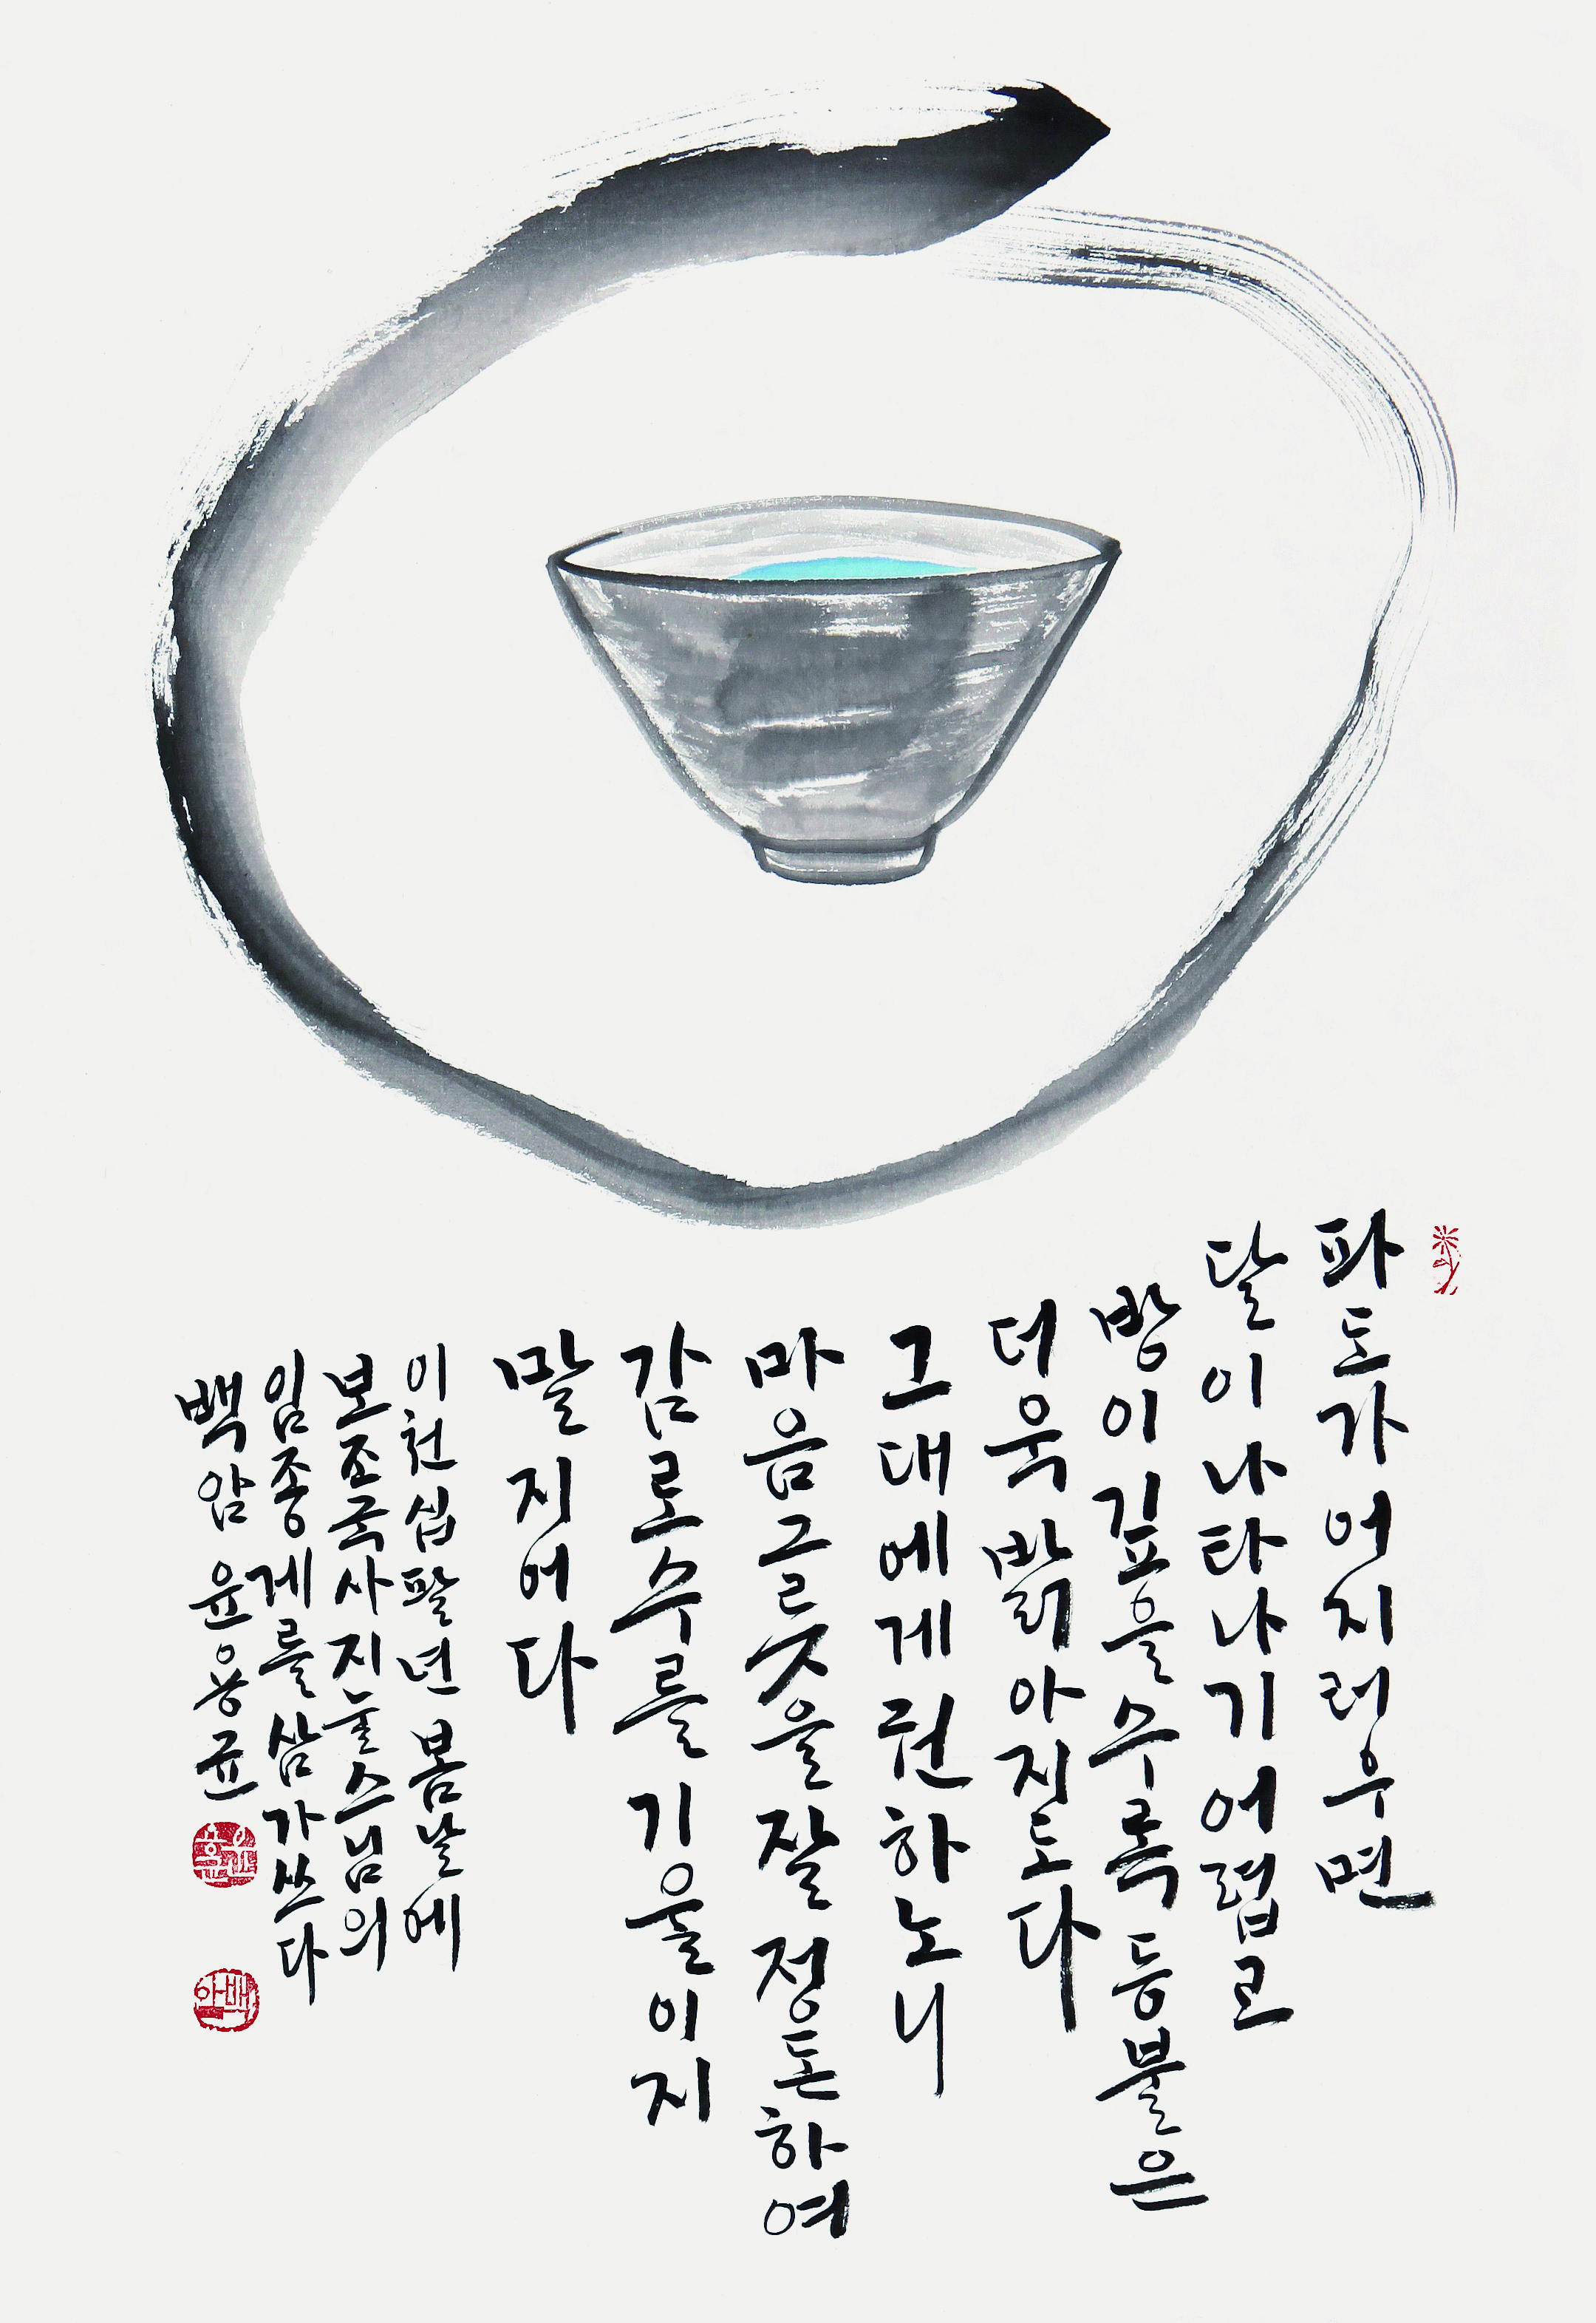 파도가 어지러우면
달이 나타나기 어렵고
방이 깊을수록 등불은
더욱 밝아지도다
그대에게 권하노니
마음그릇을 잘 정돈하여
감로수를 기울이지
말지어다
이천십팔년 봄날에
보조국사 지눌스님의
임종게를 삼가 쓰다
백암 윤용균